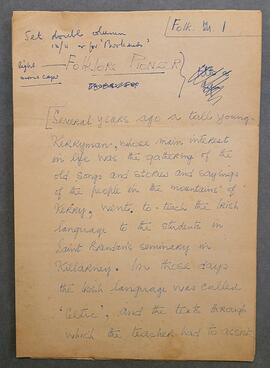 Folk. 1
Set double column
12/4 or for "Books
light
some caps
FOLKLORE PIONEER
[Several years ago a tall young
Kerryman, whose main interest
in life was the gathering of the
old songs and stories and sayings
of the people in the mountains of
Kerry, went to teach the Irish
language to the students in
Saint Brendan's seminary in
Killarney. In those days
the Irish language was called
'Celtic', and the texts through
which the teacher had to